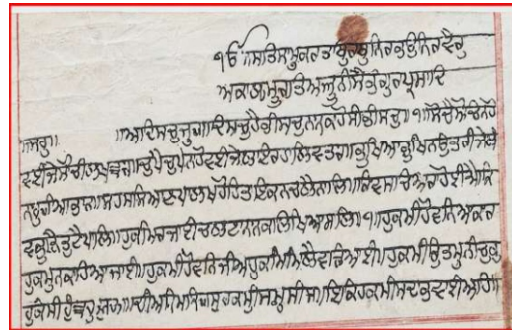 ੴ ਸਤਿਨਾਮੁਕਰਤਾਪੁਰਖੁਨਿਰਭਉਨਿਰਵੈਰੁ
ਅਕਾਲਮੂਰਤਿਅਜੂਨੀਸੈਭੰਗੁਰਪ੍ਰਸਾਦਿ
॥ਜਪੁ॥ ॥ਆਦਿਸਚੁਜੁਗਾਦਿਸਚੁਹੈਭੀਸਚੁਨਾਨਕਹੋਸੀਭੀਸਚੁ॥੧॥ਸੋਚੈਸੋਚਿਨਹੋ
ਵਈਜੇਸੋਚੀਲਖਵਾਰ॥ਚੁਪੈਚੁਪਨਹੋਵਈਜੇਲਾਇਰਹਾਲਿਵਤਾਰ॥ਭੁਖਿਆਭੁਖਨਉਤਰੀਜੇਬੰ
ਨਾਪੁਰੀਆਭਾਰ॥ਸਹਸਸਿਆਣਪਾਲਖਹੋਹਿਤਇਕਨਚਲੈਨਾਲਿ॥ਕਿਵਸਚਿਆਰਾਹੋਈਐਕਿ
ਵਕੂੜੈਤੁਟੈਪਾਲਿ॥ਹੁਕਮਿਰਜਾਈਚਲਣਾਨਾਨਕਲਿਖਿਆਨਾਲਿ॥੧॥ਹੁਕਮੀਹੋਵਨਿਆਕਾਰ
ਹੁਕਮੁਨਕਹਿਆਜਾਈ॥ਹੁਕਮੀਹੋਵਨਿਜੀਅਹੁਕਮਿਮਿਲੈਵਡਿਆਈ॥ਹੁਕਮੀਉਤਮੁਨੀਚੁ
ਇਕਿਹੁਕਮੀਸਦਾਭਵਾਈਅਹਿ॥